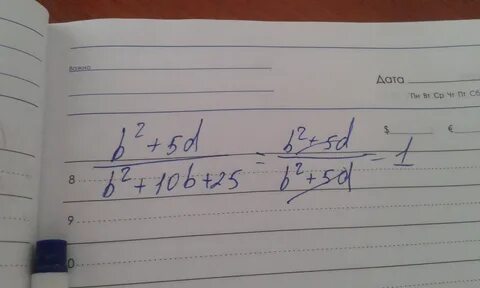 Важно
Дата
Пн Вт Ср Чт Пт Сб
$ €
8
b²+5d / b²+10b+25 = b²+5d / b²+5d = 1
9
0